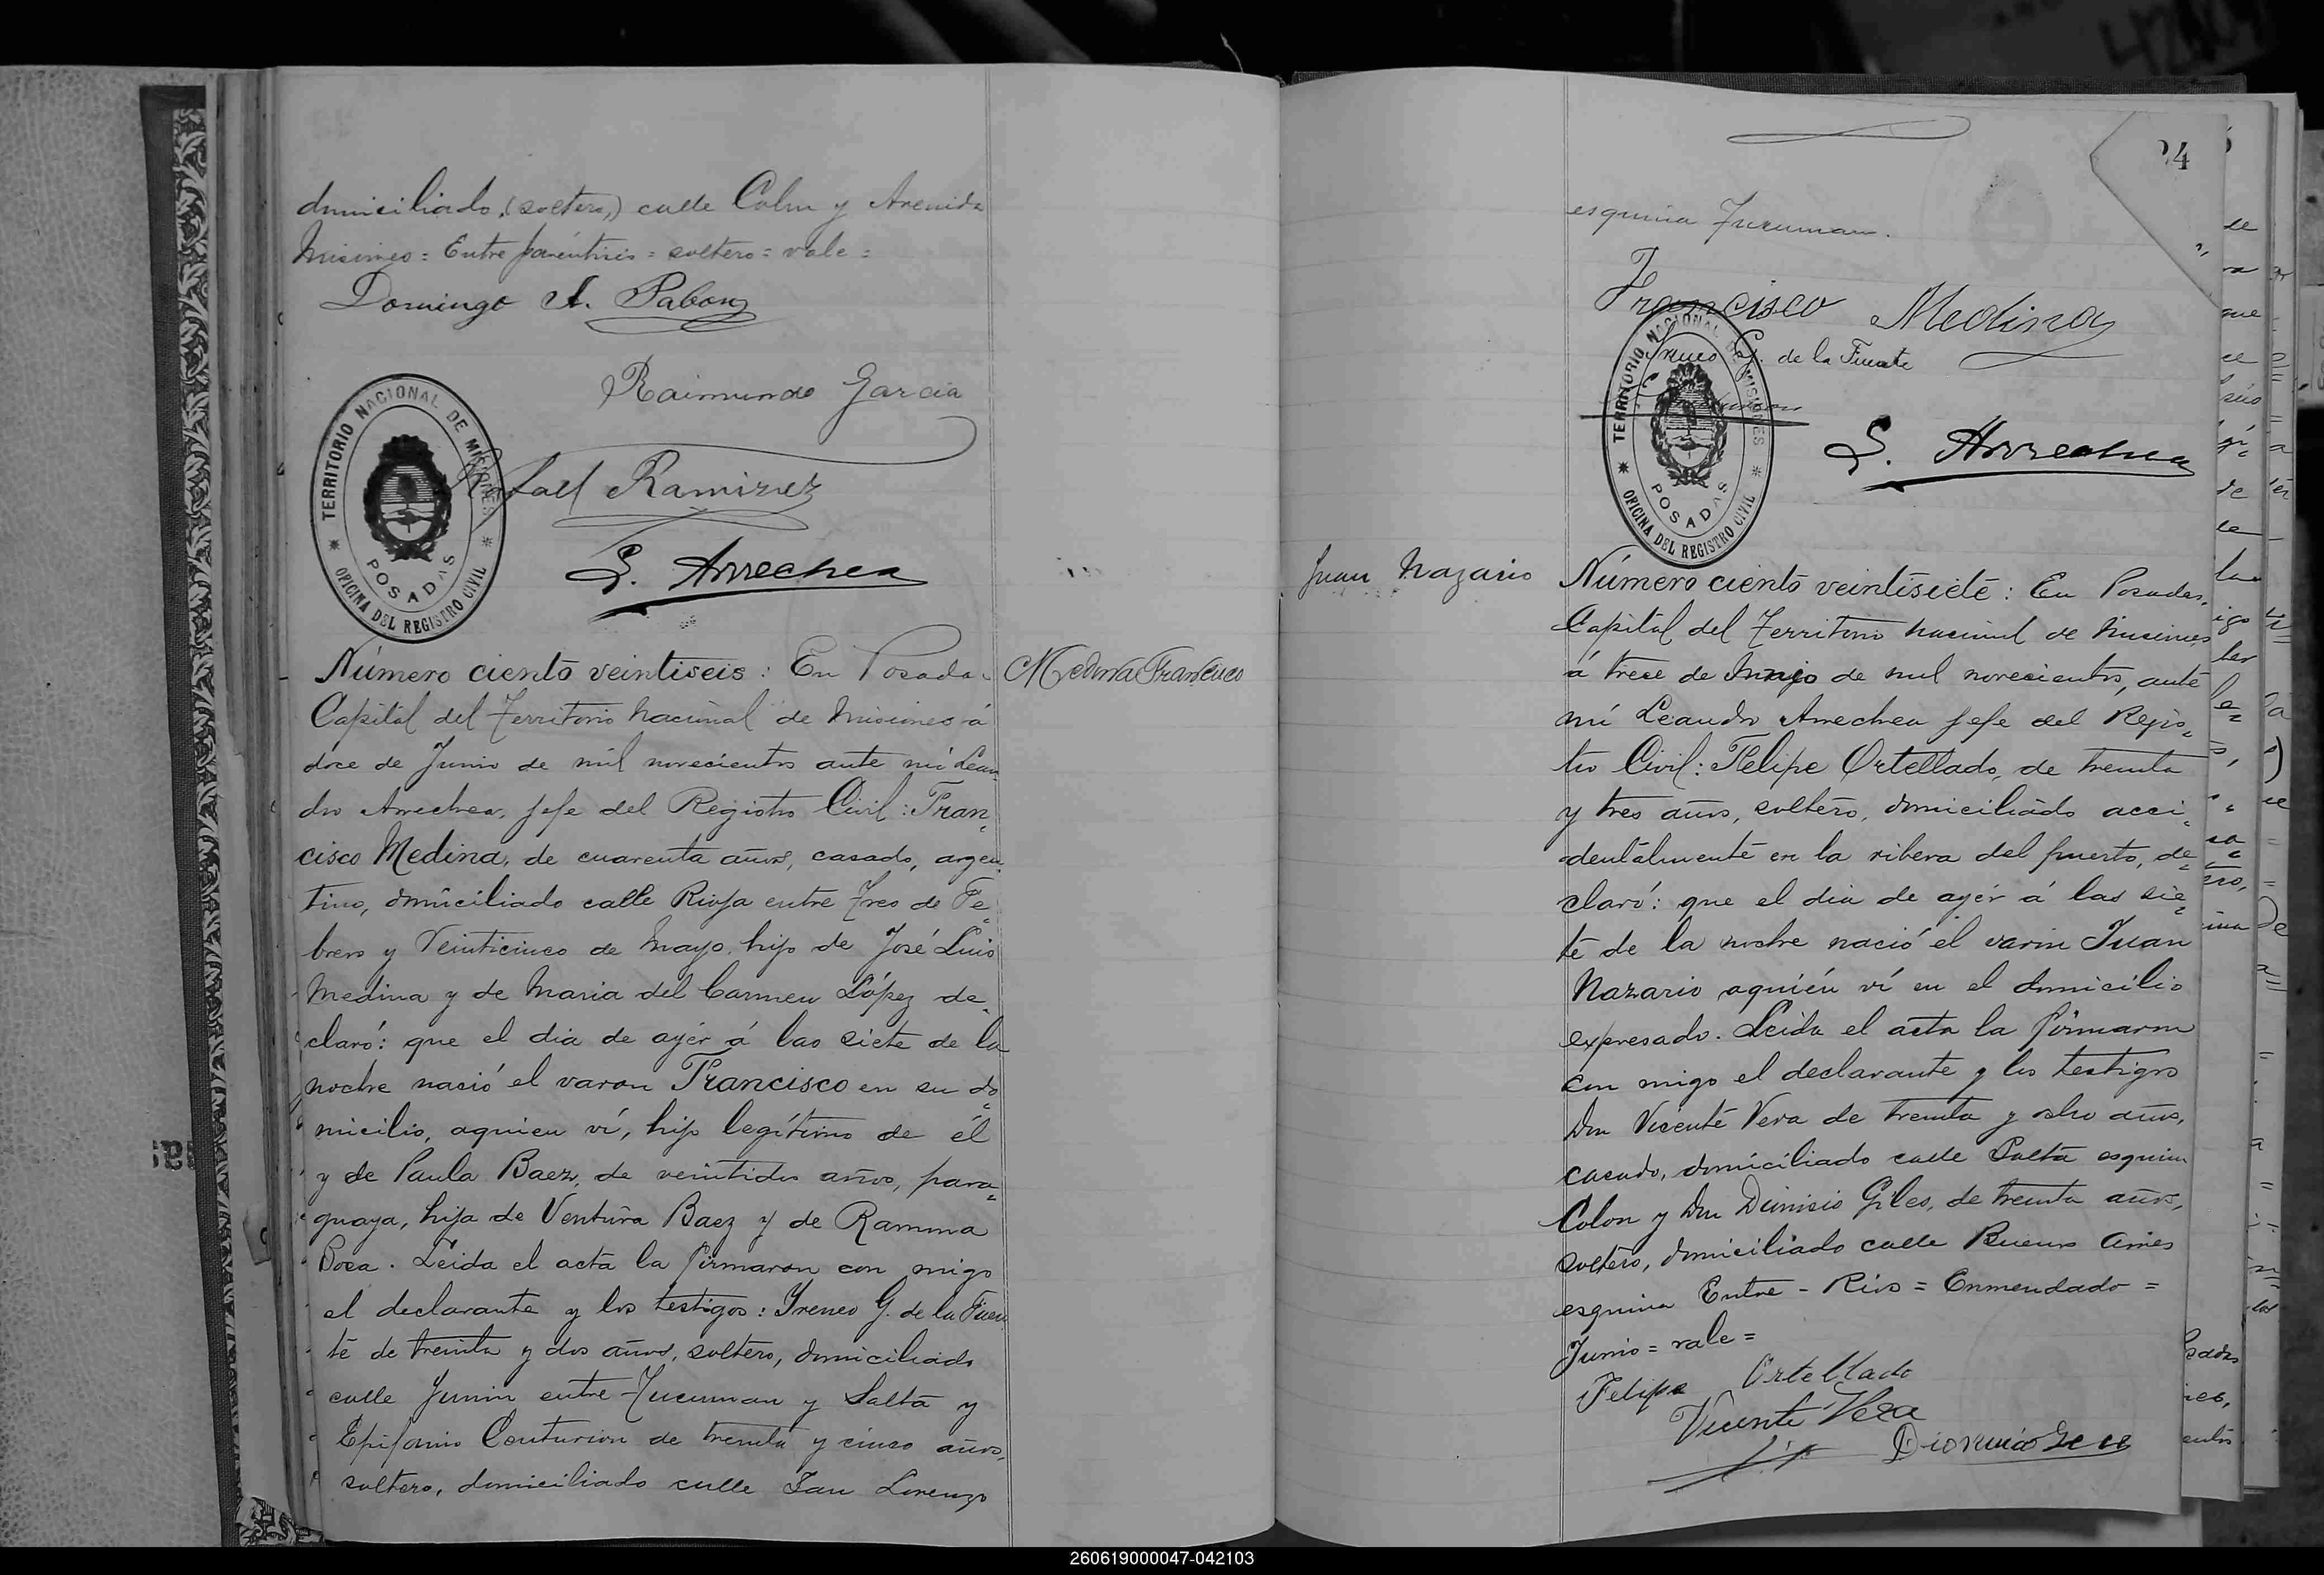 domiciliado, (soltero,) calle Colon y Avenida
Misiones = Entre paréntesis = soltero = vale =
Domingo A. Pabon
Raimundo Garcia
TERRITORIO NACIONAL DE MISIONES
OFICINA DEL REGISTRO CIVIL
POSADAS
Rafael Ramirez
L. Arrechea
Número ciento veintiseis: En Posadas
Medina Francisco
Capital del Territorio Nacional de Misiones á
doce de Junio de mil novecientos ante mí Lean
dro Arrechea, Jefe del Registro Civil: Fran=
cisco Medina, de cuarenta años, casado, argen
tino, domiciliado calle Rioja entre Tres de Fe=
brero y Veinticinco de Mayo, hijo de José Luis
Medina y de Maria del Carmen López de=
claró: que el dia de ayér á las siete de la
noche nació el varon Francisco en su do=
micilio, aquien ví, hijo legítimo de él
y de Paula Baez, de veintidos años, para=
guaya, hija de Ventura Baez y de Ramona
Boza. Leida el acta la firmaron con migo
el declarante y los testigos: Yreneo G. de la Fuen
te de treinta y dos años, soltero, domiciliado
calle Junin entre Tucuman y Salta y
Epifanio Centurion de treinta y cinco años,
soltero, domiciliado calle San Lorenzo
24
esquina Tucuman.
Francisco Medina
Yreneo G. de la Fuente
TERRITORIO NACIONAL DE MISIONES
OFICINA DEL REGISTRO CIVIL
POSADAS
L. Arrechea
Juan Nazario
Número ciento veintisiete: En Posadas,
Capital del Territorio Nacional de Misiones
á trece de Junio de mil novecientos, ante
mí Leandro Arrechea Jefe del Regis=
tro Civil: Felipe Ortellado, de treinta
y tres años, soltero, domiciliado acci=
dentalmente en la ribera del puerto, de=
claró: que el dia de ayér á las sie=
te de la noche nació el varon Juan
Nazario aquién ví en el domicilio
expresado. Leida el acta la firmaron
con migo el declarante y los testigos
Don Vicente Vera de treinta y ocho años,
casado, domiciliado calle Salta esquina
Colon y Don Dionisio Giles, de treinta años,
soltero, domiciliado calle Buenos Aires
esquina Entre-Rios = Enmendado =
Junio = vale =
Felipe Ortellado
Vicente Vera
Dionicio
260619000047-042103